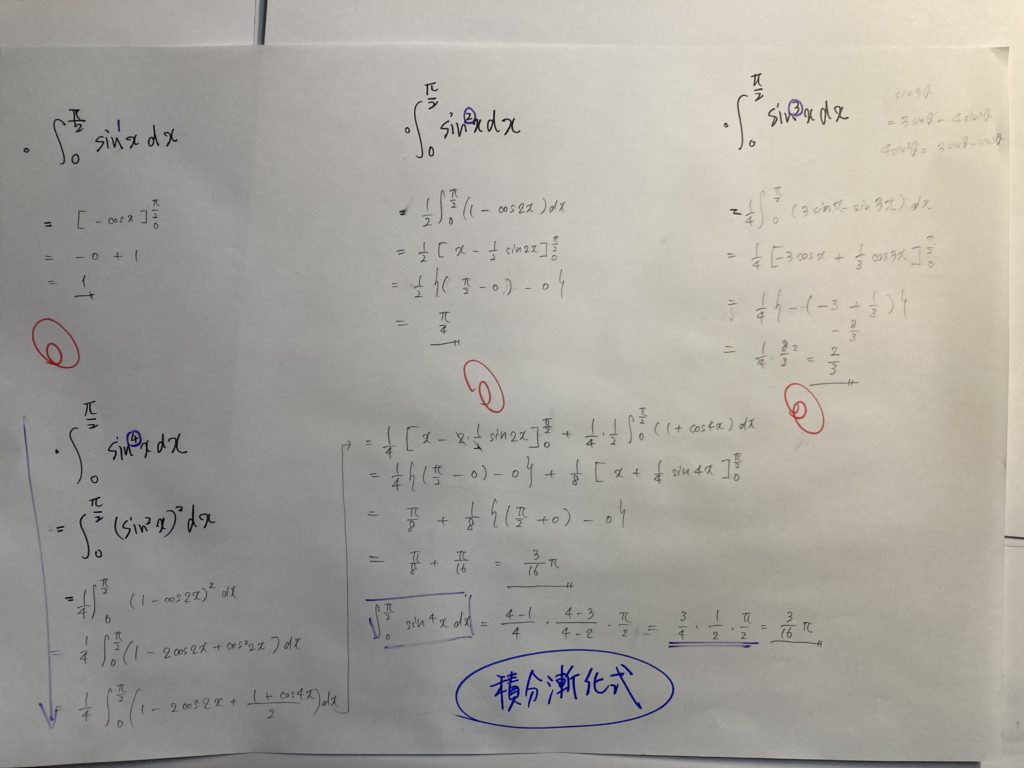 ∫₀^{π/2} sin¹x dx
= [-cosx]₀^{π/2}
= -0 + 1
= 1
∫₀^{π/2} sin²x dx
= 1/2 ∫₀^{π/2} (1 - cos2x) dx
= 1/2 [x - 1/2 sin2x]₀^{π/2}
= 1/2 {(π/2 - 0) - 0}
= π/4
∫₀^{π/2} sin³x dx
sin3θ
= 3sinθ - 4sin³θ
4sin³θ = 3sinθ - sin3θ
= 1/4 ∫₀^{π/2} (3sinx - sin3x) dx
= 1/4 [-3cosx + 1/3 cos3x]₀^{π/2}
= 1/4 {-(-3 + 1/3)}
- 8/3
= 1/4 · 8/3 ² = 2/3
∫₀^{π/2} sin⁴x dx
= ∫₀^{π/2} (sin²x)² dx
= 1/4 ∫₀^{π/2} (1 - cos2x)² dx
= 1/4 ∫₀^{π/2} (1 - 2cos2x + cos²2x) dx
= 1/4 ∫₀^{π/2} (1 - 2cos2x + (1 + cos4x)/2) dx
= 1/4 [x - 2·1/2 sin2x]₀^{π/2} + 1/4 · 1/2 ∫₀^{π/2} (1 + cos4x) dx
= 1/4 {(π/2 - 0) - 0} + 1/8 [x + 1/4 sin4x]₀^{π/2}
= π/8 + 1/8 {(π/2 + 0) - 0}
= π/8 + π/16 = 3/16 π
∫₀^{π/2} sin⁴x dx = (4-1)/4 · (4-3)/(4-2) · π/2 = 3/4 · 1/2 · π/2 = 3/16 π
積分漸化式